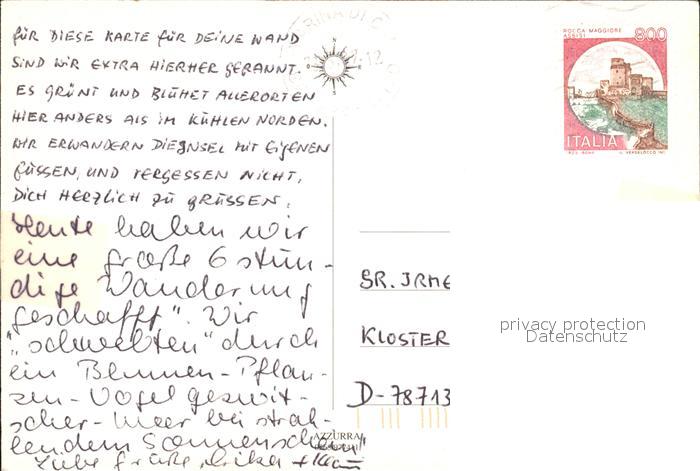 FÜR DIESE KARTE FÜR DEINE WAND
SIND WIR EXTRA HIERHER GERANNT.
ES GRÜNT UND BLÜHET ALLERORTEN
HIER ANDERS ALS IM KÜHLEN NORDEN.
WIR ERWANDERN DIE INSEL MIT EIGENEN
FÜSSEN, UND VERGESSEN NICHT,
DICH HERZLICH ZU GRÜSSEN.
Heute haben wir
eine große 6 stün-
dige Wanderung
"geschafft". Wir
"schwebten" durch
ein Blumen-Pflan-
zen-Vogelgezwit-
scher-Meer bei strah-
lendem Sonnenschein!
Liebe Grüße, Erika + Klaus
ROCCA MAGGIORE
ASSISI
800
ITALIA
SR. IRME
KLOSTER
D-78713
privacy protection
Datenschutz
AZZURRA